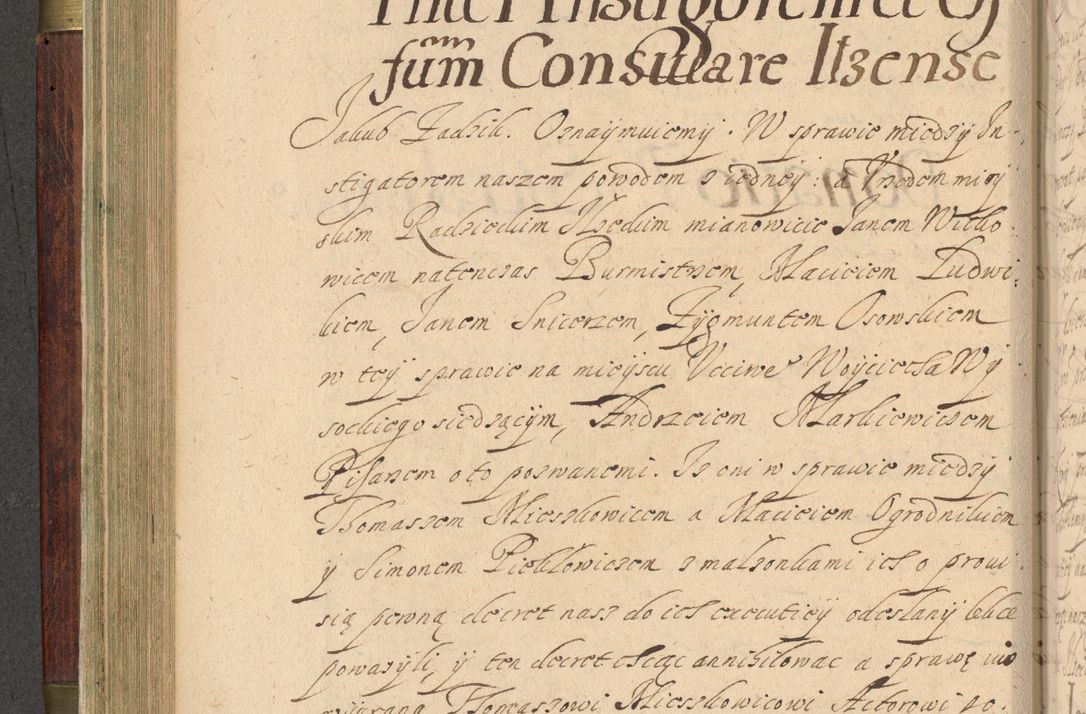 Inter Instigatorem et Of
fūm Consulare Ilzense
Jakub Zadzik. Oznaÿmuiemÿ. W sprawie miedzÿ In-
stigatorem naszem powodem z iedneÿ: a Urzedem mieÿ
skim Radzieckim Ilzeckim mianowicie Janem Witko
wicem natenczas Burmistrzem, Macieiem Ludwi:
kiem, Janem Snicerzem, Zÿgmuntem Osowskiem
w teÿ sprawie na mieÿscu Ucciwe° Woÿciecha Wÿ
sockiego siedzącÿm, Andrzeiem Markiewiczem
Pisarzem oto pozwanemi. Iz oni w sprawie miedzÿ
Thomaszem Mieszkowicem a Macieiem Ogrodnikiem
ÿ Simonem Piekłowiczem z małzonkami ich o prowi
sią pewną decret nasz do ich executieÿ odesłanÿ lekce
powazÿli, ÿ ten decret chcąc annihilowac a sprawę
wÿgraną Thomaszowi Mieszkowicowi Actorowi